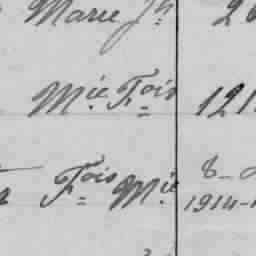 Marie Jh
Mie Fois 121
Fois Mie 8-
1914-